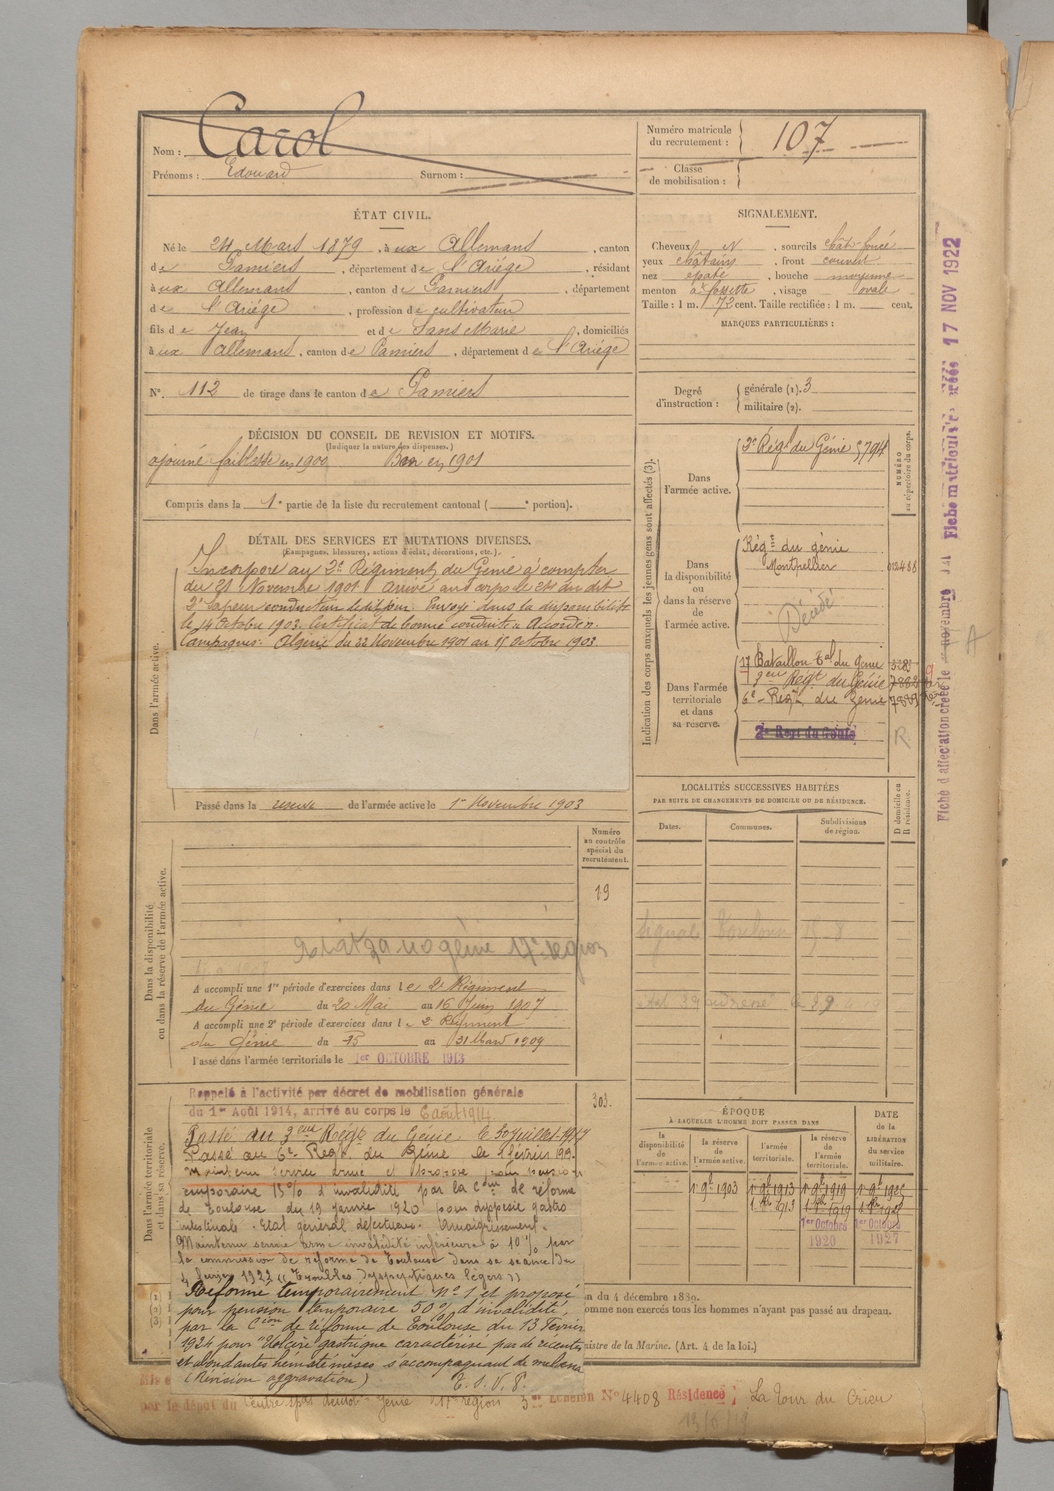 Nom : Carol
Prénoms : Edouard Surnom :
Numéro matricule du recrutement : 107
Classe de mobilisation :
ÉTAT CIVIL.
Né le 24 Mars 1879, à ux Allemans, canton
de Pamiers, département de l'Ariége, résidant
à ux Allemans, canton de Pamiers, département
de l'Ariége, profession de cultivateur
fils de Jean et de Sans Marie, domiciliés
à ux Allemans, canton de Pamiers, département de l'Ariége
N°. 112 de tirage dans le canton de Pamiers
DÉCISION DU CONSEIL DE REVISION ET MOTIFS.
(Indiquer la nature des dispenses.)
ajourné faiblesse en 1900 Bon en 1901
Compris dans la 1e partie de la liste du recrutement cantonal ( e portion).
DÉTAIL DES SERVICES ET MUTATIONS DIVERSES.
(Campagnes, blessures, actions d'éclat, décorations, etc.).
Incorporé au 2e Régiment du Génie à compter
du 21 Novembre 1901 arrivé au corps le 24 du dit
2e Sapeur conducteur le dit jour. Envoyé dans la disponibilité
le 14 octobre 1903. Certificat de bonne conduite Accordé.
Campagnes: Algérie du 22 Novembre 1901 au 15 Octobre 1903
Dans l'armée active.
Passé dans la réserve de l'armée active le 1er Novembre 1903
Numéro au contrôle spécial du recrutement.
19
Dans la disponibilité ou dans la réserve de l'armée active.
génie 17e région
A accompli une 1re période d'exercices dans le 2e Régiment
du Génie du 20 Mai au 16 Juin 1907
A accompli une 2e période d'exercices dans le 2e Régiment
du Génie du 15 au 31 Mars 1909
Passé dans l'armée territoriale le 1er OCTOBRE 1913
303.
Dans l'armée territoriale et dans sa réserve.
Rappelé à l'activité par décret de mobilisation générale
du 1er Août 1914, arrivé au corps le 6 août 1914
Passé au 3eme Régt du Génie le 30 juillet 1917
Passé au 6e Régt du Génie le 1 février 191
Maintenu service armé et proposé pour pension
temporaire 15% d'invalidité par la Cion de réforme
de Toulouse du 19 janvier 1920 pour dyspepsie gastro
intestinale. Etat général défectueux. Amaigrissement.
Maintenu service armé invalidité inférieure à 10% par
la commission de réforme de Toulouse dans sa séance du
février 1922 "(Troubles dyspeptiques légers)"
Réformé temporairement N° 1 et proposé
pour pension temporaire 50% d'invalidité
par la Cion de réforme de Toulouse du 13 Février
1924 pour "Ulcère gastrique caractérisé par de récentes
et abondantes hématémèses s'accompagnant de melaena
(Révision aggravation) T. S. V. P.
SIGNALEMENT.
Cheveux N, sourcils chât. foncé
yeux châtains, front couvert
nez épaté, bouche moyenne
menton à fossette, visage ovale
Taille : 1 m. 73 cent. Taille rectifiée : 1 m. cent.
MARQUES PARTICULIÈRES :
Degré d'instruction :
générale (1). 3
militaire (2).
Indication des corps auxquels les jeunes gens sont affectés (3).
NUMÉRO au répertoire du corps.
Dans l'armée active.
2e Régt du Génie 5794
Dans la disponibilité ou dans la réserve de l'armée active.
Régt du génie
Montpellier
Décédé
Dans l'armée territoriale et dans sa réserve.
17 Bataillon Tal du Génie
3eme Régt du Génie
6e Régt du Génie
2e Régt du Génie
R
LOCALITÉS SUCCESSIVES HABITÉES
PAR SUITE DE CHANGEMENTS DE DOMICILE OU DE RÉSIDENCE.
Dates. Communes. Subdivisions de région.
D domicile ou R résidence.
ÉPOQUE
À LAQUELLE L'HOMME DOIT PASSER DANS
la disponibilité de l'armée active.
la réserve de l'armée active.
l'armée territoriale.
la réserve de l'armée territoriale.
DATE DE LA LIBÉRATION du service militaire.
1er 9bre 1903 1er 9bre 1913 1er 9bre 1919 1er 9bre 1925
1er Octobre 1920 1er Octobre 1927
du 4 décembre 1889.
omme non exercés tous les hommes n'ayant pas passé au drapeau.
nistre de la Marine. (Art. 4 de la loi.)
par le dépôt du Génie 17e région 3me Echelon N° 4408 Résidence : La Tour du Crieu
13/6/19
Fiche d'affectation créée le novembre
Fiche matricule créée 17 NOV 1922